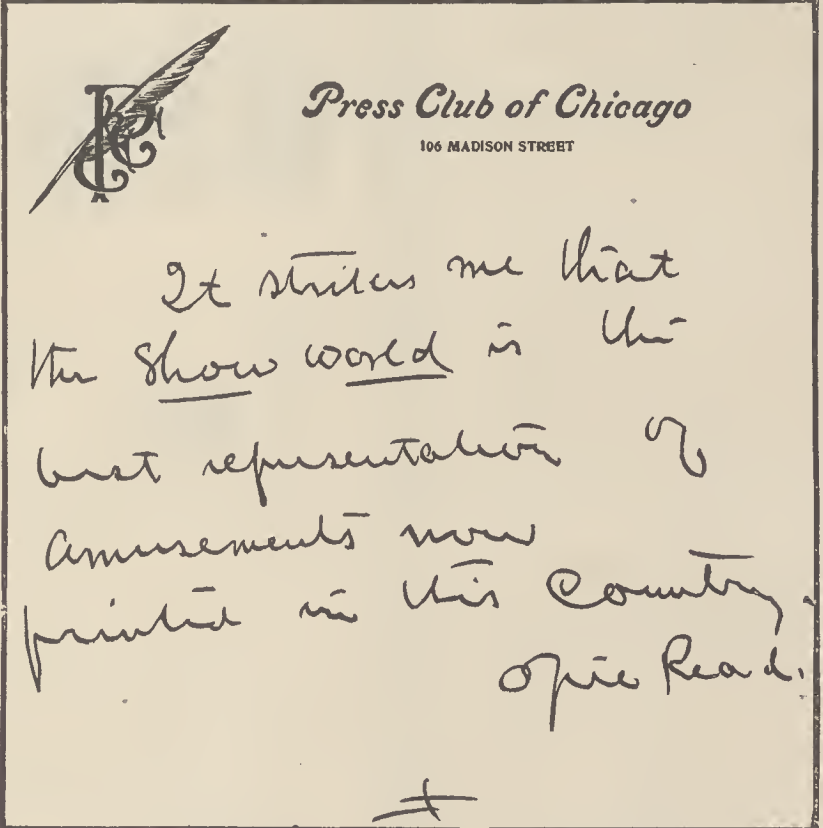 PCC
Press Club of Chicago
106 MADISON STREET
It strikes me that
the Show world is the
best representation of
amusements now
printed in this Country.
Opie Read.